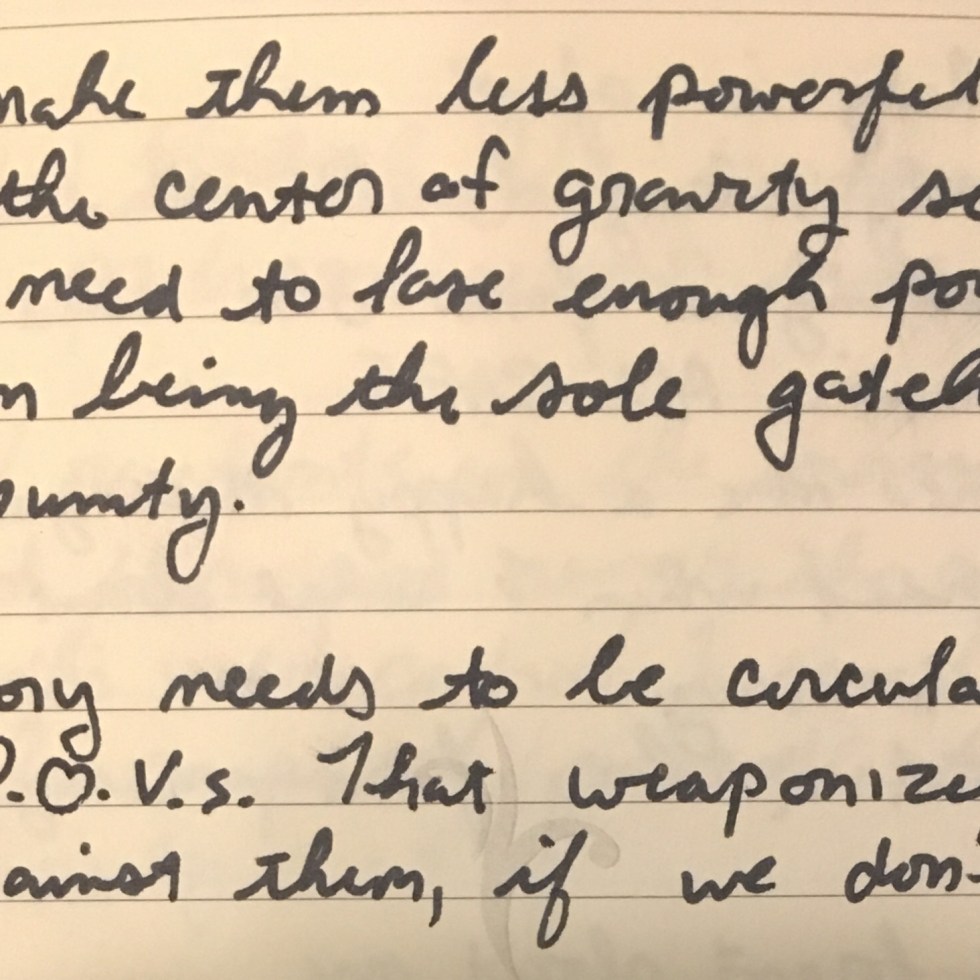 make them less powerful
the center of gravity so
need to lose enough pow
n being the sole gatek
punity.
ory needs to be circula
P.O.V.s. That weaponize
ainst them, if we don'